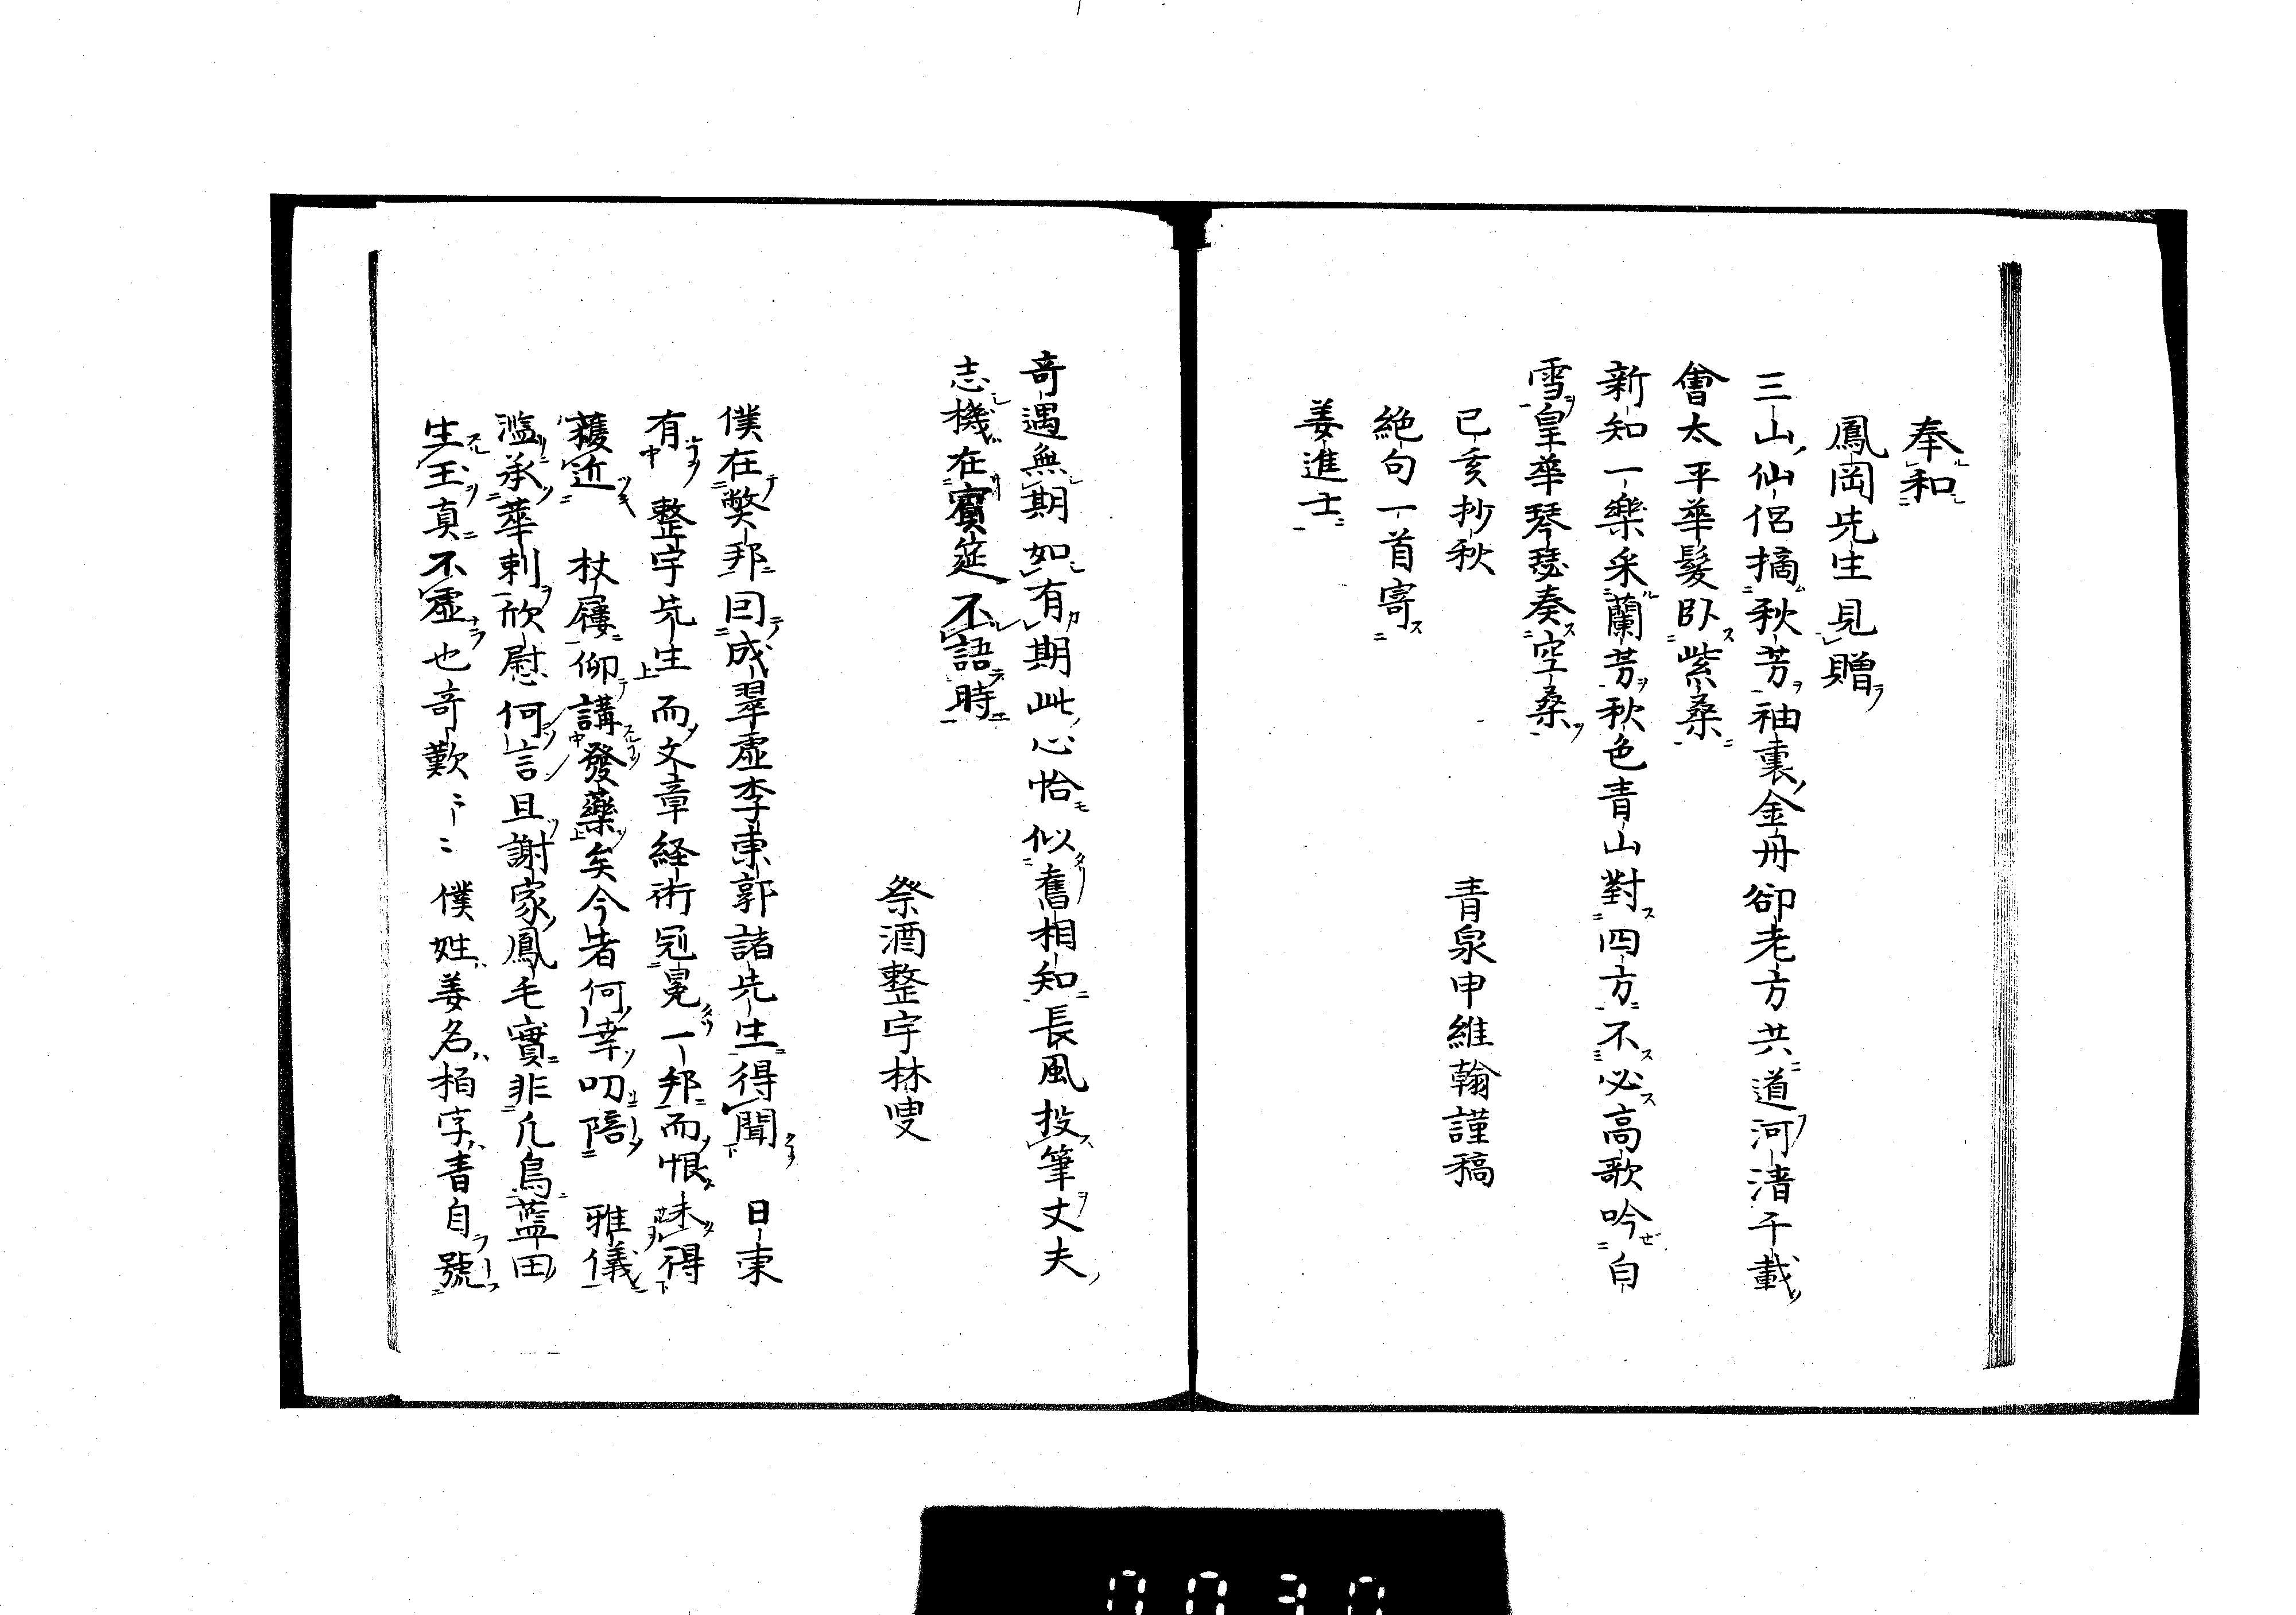 奉和
鳳岡先生見贈
三山仙侶摘秋芳袖裏金丹卻老方共道河清千載
會太平華髮臥紫桑
新知一樂采蘭芳秋色青山對四方不必高歌吟白
雪皇華琴瑟奏空桑
己亥抄秋　青泉申維翰謹稿
絕句一首寄
姜進士
奇遇無期如有期此心恰似舊相知長風投筆丈夫
志機在賓筵不語時
祭酒整宇林叟
僕在弊邦因成翠虛李東郭諸先生得聞　日東
有　整宇先生而文章経術冠冕一邦而恨未得
獲近　杖屨仰講發藥矣今者何幸叨陪　雅儀
濫承華刺欣慰何言且謝家鳳毛實非凡鳥藍田
生玉真不虛也奇歎々々僕姓姜名栢字耆自號
0030